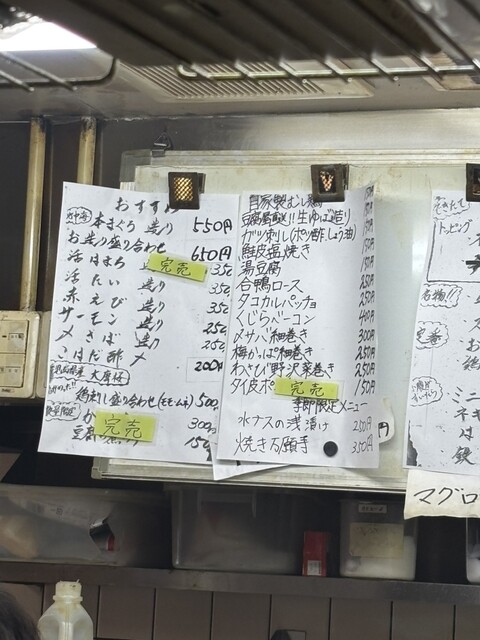 おすすめ
本まぐろ 造り 550円
お造り盛り合わせ 650円
活はまち 完売 350
活たい 造り 350
赤えび 造り 350
サーモン 造り 250
〆さば 250
こはだ酢〆 200円
大摩桜
鶏刺し盛り合わせ(モモ・ムネ) 500円
完売 300円
豆腐 150
自家製むし鶏
豆腐屋直送!!生ゆば造り
ガツ刺し(ポン酢・しょう油)
鮭皮塩焼き 150
湯豆腐 150
合鴨ロース 250
タコカルパッチョ 250
くじらベーコン 400
〆サバ細巻き 300円
梅かっぱ細巻き 250円
わさび野沢菜巻き 250円
タイ皮ポ 完売 150円
季節限定メニュー
水ナスの浅漬け 250円
焼き万願手 350円
円
トッピング
名物!!
定番
ミニ
ネギ
は
鉄
マグロ